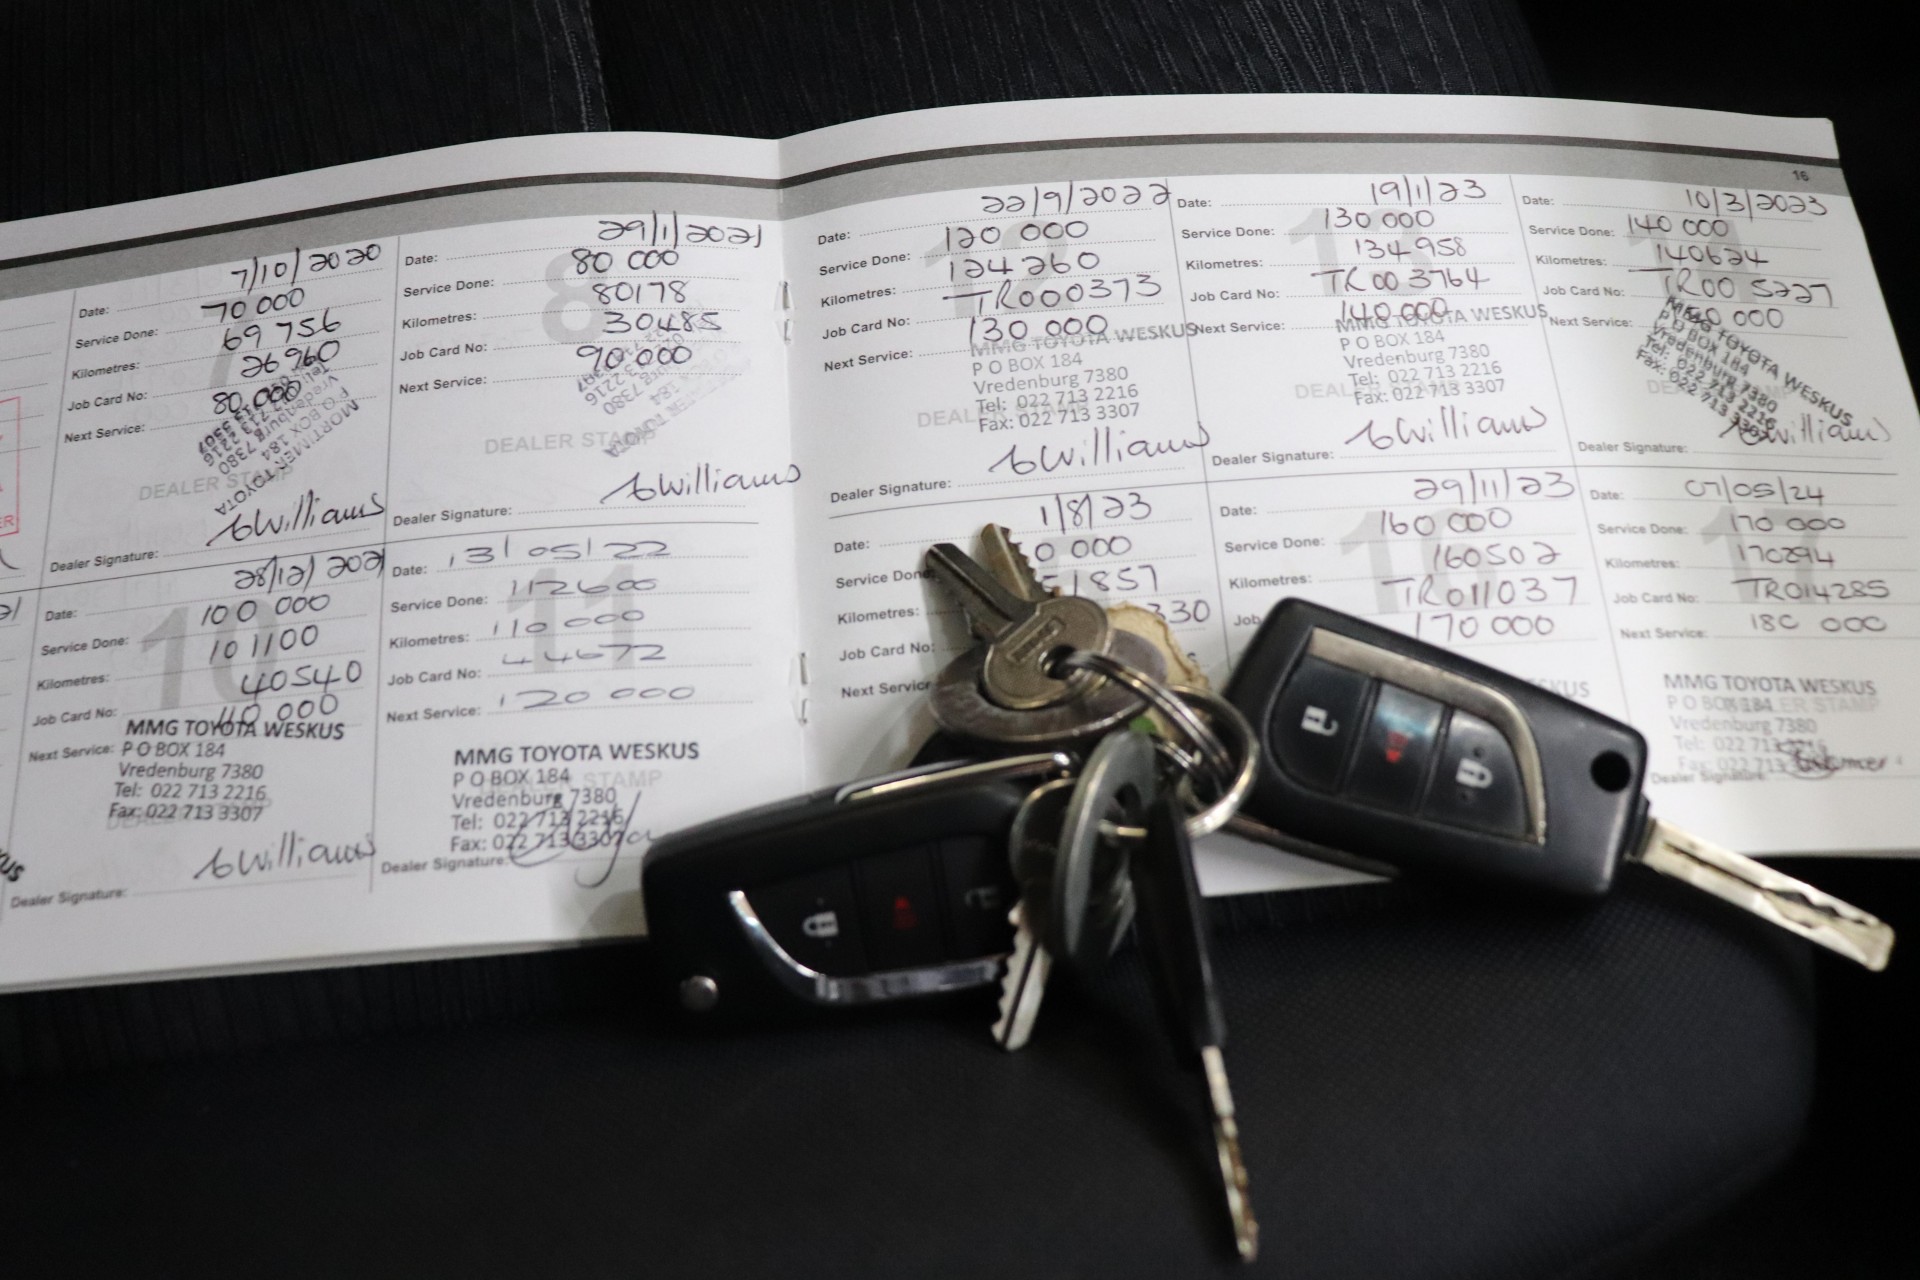 16
Date: 7/10/2020
Service Done: 70 000
Kilometres: 69 756
Job Card No: 26960
Next Service: 80 000
MORTIMER TOYOTA
P O BOX 184
Vredenburg 7380
DEALER STAMP
Dealer Signature: Williams
Date: 29/1/2021
Service Done: 80 000
Kilometres: 80178
Job Card No: 30485
Next Service: 90 000
8
DEALER STAMP
Dealer Signature: Williams
Date: 22/9/2022
Service Done: 120 000
Kilometres: 124260
Job Card No: TR000373
Next Service: 130 000
MMG TOYOTA WESKUS
P O BOX 184
Vredenburg 7380
Tel: 022 713 2216
Fax: 022 713 3307
Dealer Signature: Williams
Date: 19/1/23
Service Done: 130 000
Kilometres: 134958
Job Card No: TR003764
Next Service: 140 000
MMG TOYOTA WESKUS
P O BOX 184
Vredenburg 7380
Tel: 022 713 2216
Fax: 022 713 3307
Dealer Signature: Williams
Date: 10/3/2023
Service Done: 140 000
Kilometres: 140624
Job Card No: TR005227
Next Service:
MMG TOYOTA WESKUS
P O BOX 184
Vredenburg 7380
Tel: 022 713 2216
Fax: 022 713 3307
Dealer Signature: Williams
Date: 28/12/2021
Service Done: 100 000
Kilometres: 101100
Job Card No: 40540
Next Service: 110 000
10
MMG TOYOTA WESKUS
P O BOX 184
Vredenburg 7380
Tel: 022 713 2216
Fax: 022 713 3307
Dealer Signature: Williams
Date: 13/05/22
Service Done: 112600
Kilometres: 110 000
Job Card No: 44672
Next Service: 120 000
11
MMG TOYOTA WESKUS
P O BOX 184
DEALER STAMP
Vredenburg 7380
Tel: 022 713 2216
Fax: 022 713 3307
Dealer Signature:
Date: 1/8/23
Service Done 0 000
Kilometres: 1857
Job Card No: 330
Next Service
Date: 29/11/23
Service Done: 160 000
Kilometres: 160502
Job TR011037
170 000
16
Date: 07/05/24
Service Done: 170 000
Kilometres: 170294
Job Card No: TR014285
Next Service: 180 000
17
MMG TOYOTA WESKUS
P O BOX 184
Vredenburg 7380
Tel: 022 713 2216
Fax: 022 713
Dealer Signature: